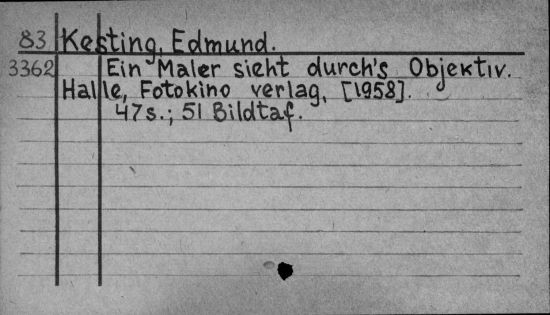 83 Kesting, Edmund.
3362 Ein Maler sieht durch's Objektiv.
Halle, Fotokino verlag, [1958].
47s.; 51 Bildtaf.